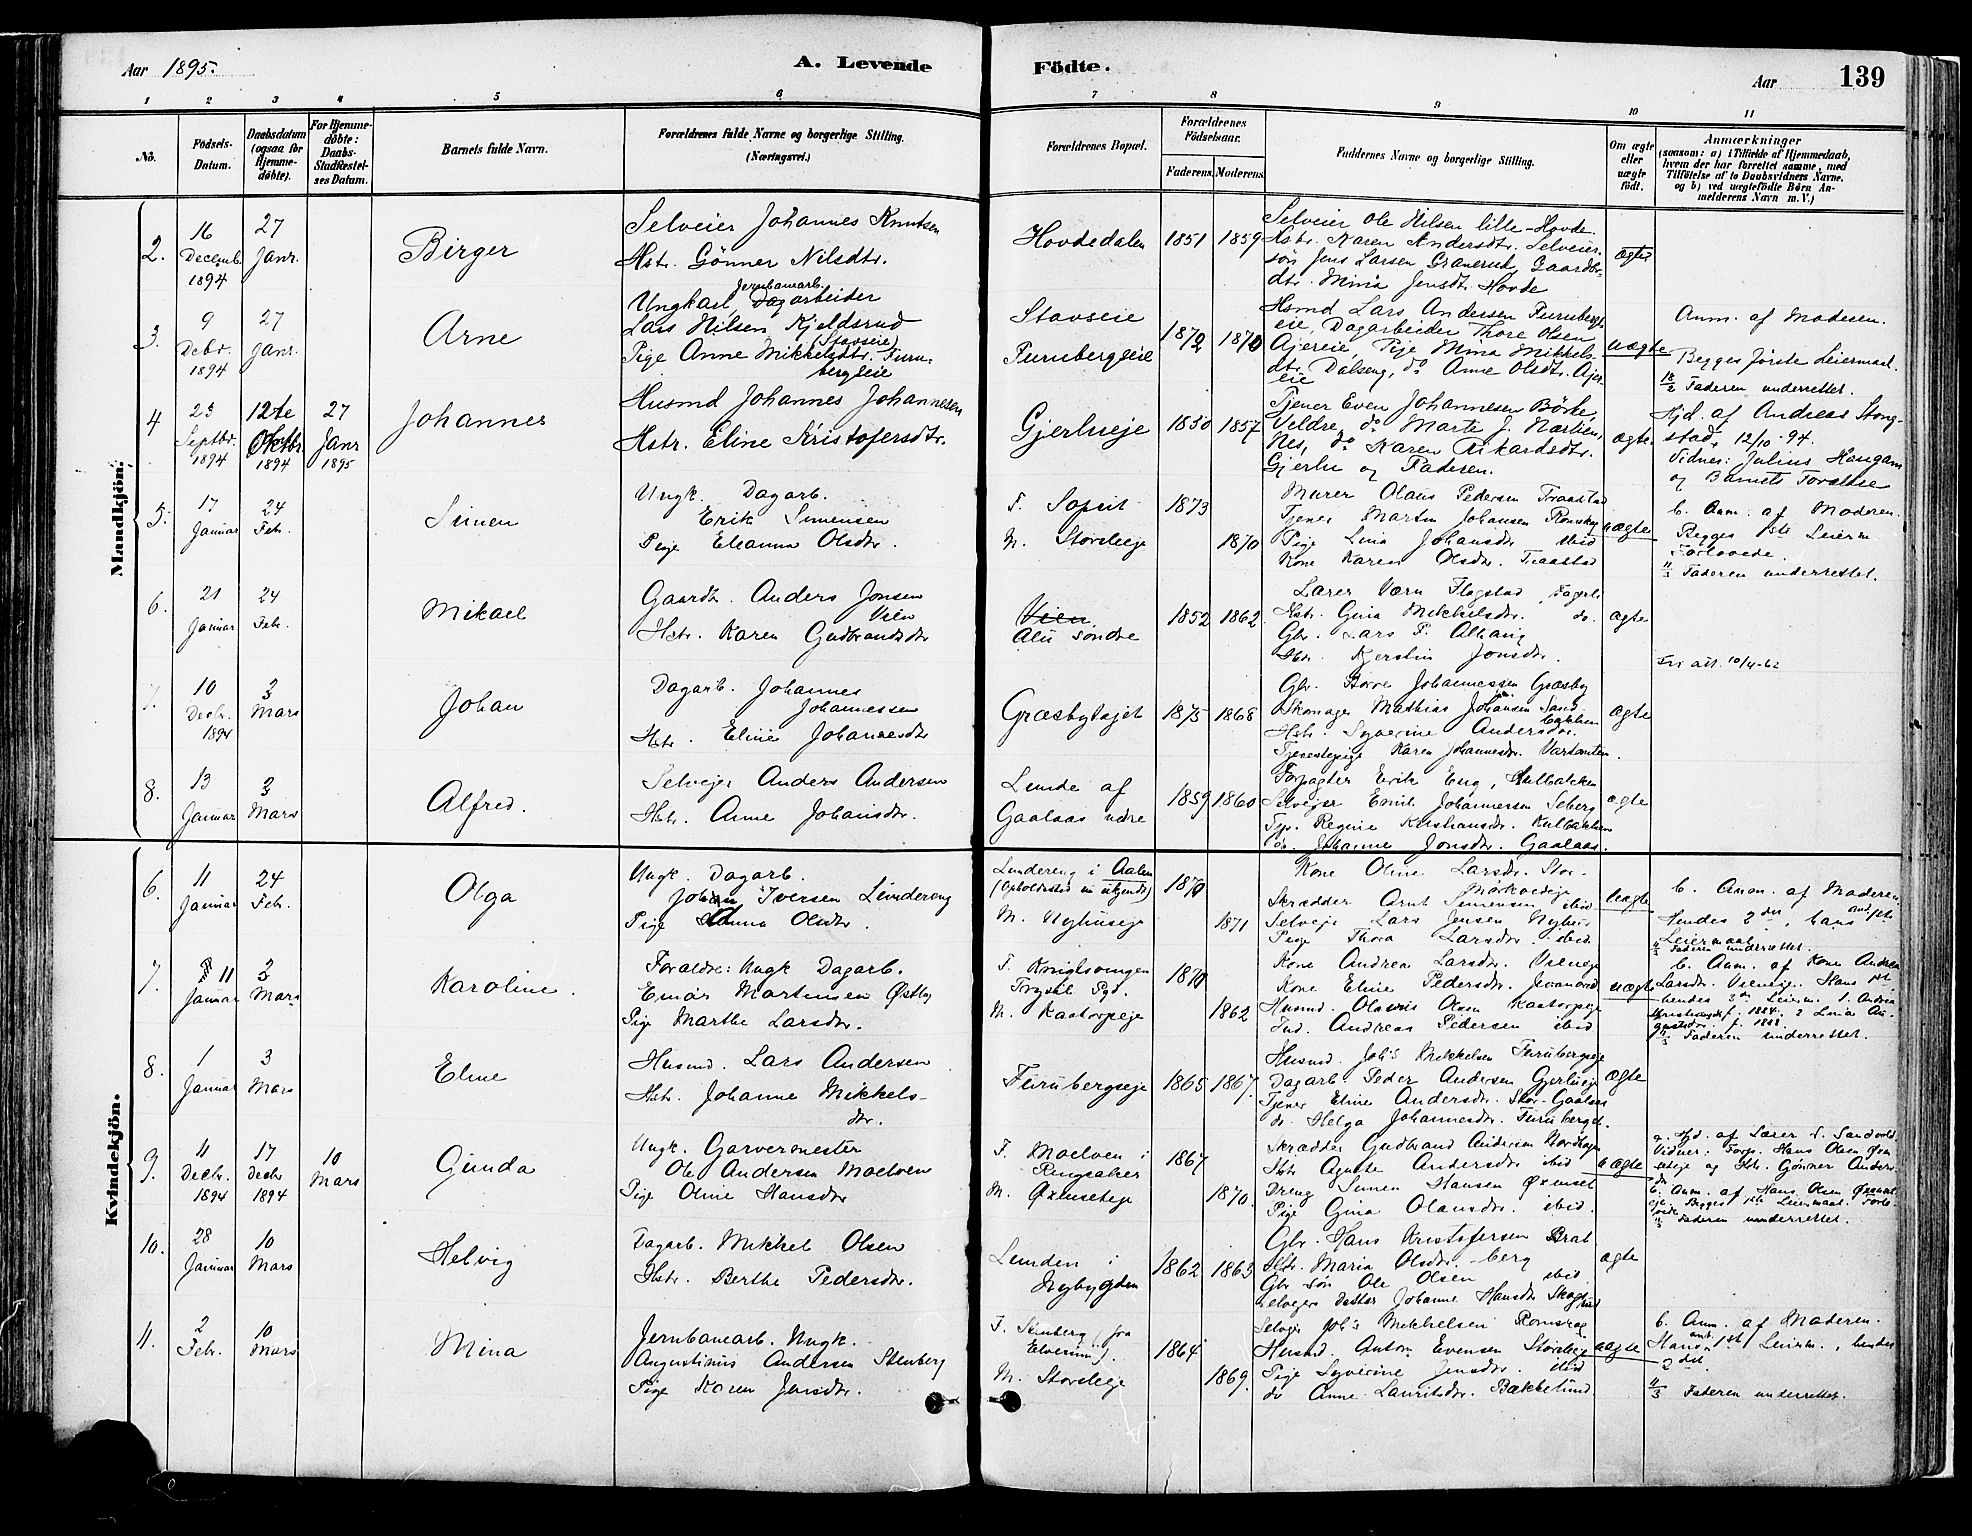 Aar 1895.
A. Levende
Födte.
Aar
139
1 2 3 4 5 6 7 8 9 10 11
No.
Födsels-
Datum.
Daabsdatum
(ogsaa for
Hjemme-
döbte).
For Hjemme-
döbte:
Daabs-
Stadfæstel-
ses Datum.
Barnets fulde Navn.
Forældrenes fulde Navne og borgerlige Stilling.
(Næringsvei.)
Forældrenes Bopæl.
Forældrenes
Födselsaar.
Faderens.
Moderens.
Faddernes Navne og borgerlige Stilling.
Om ægte
eller
uægte
födt.
Anmærkninger
(saasom: a) i Tilfælde af Hjemmedaab,
hvem der har forrettet samme, med
Tilföielse af to Daabsvidners Navne.
og b) ved uægtefödte Börn An-
melderens Navn m.V.)
Mandkjön.
2.
16
Decemb.
1894
27
Janr.
Birger
Selveier Johannes Knutsen
Hstr. Gönner Nilsdtr.
Hovdedalen
1851
1859
Selveier Ole Nilsen lille-Hovde.
Hstr. Karen Andersdtr. Selveier
sön Jens Larsen Granerud, Gaardbr.
dtr. Mina Jensdtr. Hovde
ægte
3.
9
Debr.
1894
27
Janr.
Arne
Jernbanearb.
Ungkarl Dagarbeider
Lars Nilsen Kjeldsrud
(Stavseie)
Pige Anne Mikkelsdtr. Furu-
bergseie
Stavseie
Furubergseie
1872
1870
Hsmd Lars Andersen Furubergs
eie, Dagarbeider Thore Olsen
Ajereie, Pige Mina Mikkels-
dtr. Dalseng, do Anne Olsdtr. Ajer
eie
uægte
Anm. af Moderen.
Begges förste Leiermaal.
18/2 Faderen underrettet.
4
23
Septbr.
1894
12te
Oktbr.
1894
27
Janr
1895
Johannes
Husmd Johannes Johannesen
Hstr. Eline Kristofersdtr.
Gjerlueje
1850
1857
Tjener Even Johannesen Börke,
Veldre, do Marte J. Nærlien,
Nes, do Karen Rikardsdtr.
Gjerlu og Faderen.
ægte
Hjd. af Andreas Stong-
stad, 12/10 - 94.
Vidner: Julius Haugam
og Barnets Forældre
5.
17
Januar
24
Feb.
Simen
Ungk. Dagarb.
Erik Simensen
Pige Eleanna Olsdtr.
F. Sopset
M. Storsleeje
1873
1870
Murer Olaus Pedersen Traastad
Tjener Martin Johansen Romsag
Pige Lina Johansdr ibid
Kone Karen Olsdtr. Traastad
uægte
b. Anm. af Moderen.
Begges 1ste Leierm.
Forlovede.
11/3 Faderen underrettet.
6.
21
Januar
24
Feb.
Mikael
Gaardbr. Anders Jonsen
Vien
Hstr. Karen Gudbrandsdr
Vien.
Alu söndre
1852
1862
Lærer Værn Flagstad, Fagerli
Hstr. Gina Mikkelsdtr. do.
Gbr. Lars P. Alhaug
Hstr. Kjerstin Jonsdr.
ægte
7.
10
Decbr.
1894
3
Mars
Johan
Dagarb. Johannes
Johannessen
Hstr. Eline Johannesdtr
Græsbytajet
1875
1868
Gbr. Börre Johannessen Græsby
Skomager Mathias Johansen Sand-
bakken
Hstr. Syverine Andersdtr.
Tjenestepige Karen Johannesdtr.
ægte
8.
13
Januar
3
Mars
Alfred.
Selvejer Anders Andersen
Hstr. Anne Johansdr.
Lunde af
Gaalaas nedre
1859
1860
Forpagter Erik Eng, Kulbakken
Selvejer Emil Johannessen Seberg
Fyr. Regine Kristiansdr. Kulbakken
do. Johanne Jonsdr. Gaalaas.
ægte
Kvindekjön.
6.
11
Januar
24
Feb.
Olga
Ungk. Dagarb.
Johan Iversen Lundereng
Pige Anna Olsdtr.
Lundereng i Aalen
(Opholdssted nu ukjendt)
M. Nyhuseje
1870
1871
Kone Oline Larsdr. Stor-
Mörkvedeje
Skrædder Arnt Simensen ibid
Selvejer Lars Jensen Nyhus
Pige Thora Larsdr. ibid.
uægte
b. Anm. af Moderen
Hendes 2det, hans 1ste
Leiermaal
11/3 Faderen underrettet.
7.
11
Januar
3
Mars
Karoline.
Forældre: Ungk Dagarb.
Einar Martinsen Østby
Pige Marthe Larsdr.
F. Knistsvingen
Trysil Pgd.
M. Kaatorpeje
1870
1862
Kone Andrea Larsdr. Vieneje
Kone Eline Pedersdr.
Husmd Olaves Olsen Kaatorpeje
Ind. Andreas Pedersen ibid
uægte
b. Anm. af Kone Andrea
Larsdr. Vieneje. Hans 1ste
hendes 3die Leierm. 1. Andrea
f. 1884. 2 Lina Au-
gustsdr. f. 1888.
11/3 Faderen underrettet.
8.
1
Januar
3
Mars
Eline
Husmd. Lars Andersen
Hstr. Johanne Mikkels-
dtr.
Furubergseje
1865
1867.
Husmd. Joh's Mikkelsen Furubergseje
Dagarb. Peder Andersen Gjerlueje
Tjener Eline Andersdr. Stor-Gaalaas
do. Helga Johannesdr. Furuberget.
ægte
9.
11
Decbr.
1894
17
Decbr
1894
10
Mars
Gunda
Ungk. Garvermester
Ole Andersen Moelven
Pige Oline Hansdtr
F. Moelven i
Ringsaker
M. Øxnseteje
1867
1870.
Skrædder Gudbrand Andersen Nordhagen
Hstr Agnete Andersdtr ibid
Dreng Simen Hansen Øxenset
Pige Gina Olausdtr. ibid.
uægte
a. Hjd. af Lærer S. Sandvold
Vidner: Forp. Hans Olsen Øxn-
seteje og Hstr. Gönner Anders
dr
b. Anm. af Hans Olsen Øxnset
eje. Begges 1ste Leiermaal. Forlo-
vede
11/3 Faderen underrettet.
10.
28
Januar
10
Mars
Helvig
Dagarb. Mikkel Olsen
Hstr. Berthe Pedersdtr.
Lunden i
Nybygden
1862
1863
Gbr. Hans Kristofersen Brat
Hstr. Maria Olsdtr. -berg
Gbr sön Ole Olsen ibid
Selvejers datter Johanne Hansdr Skogsrud
ægte
11.
2
Febr.
10
Mars
Mina
Jernbanearb. Ungk.
Augustinus Andersen Stenberg
Pige Karen Jensdtr.
F. Stenberg (fra
Elverum).
M. Storsleeje
1864
1869.
Selvejer Joh's Mikkelsen Romsaag
Husmd. Anton Evensen Storsleeje
Pige Syverine Jensdtr. ibid
do Anne Lauritsdr. Bækkelund
uægte
b. Anm. af Moderen.
Hans 1ste Leierm., hendes
2det
11/3 Faderen underrettet.